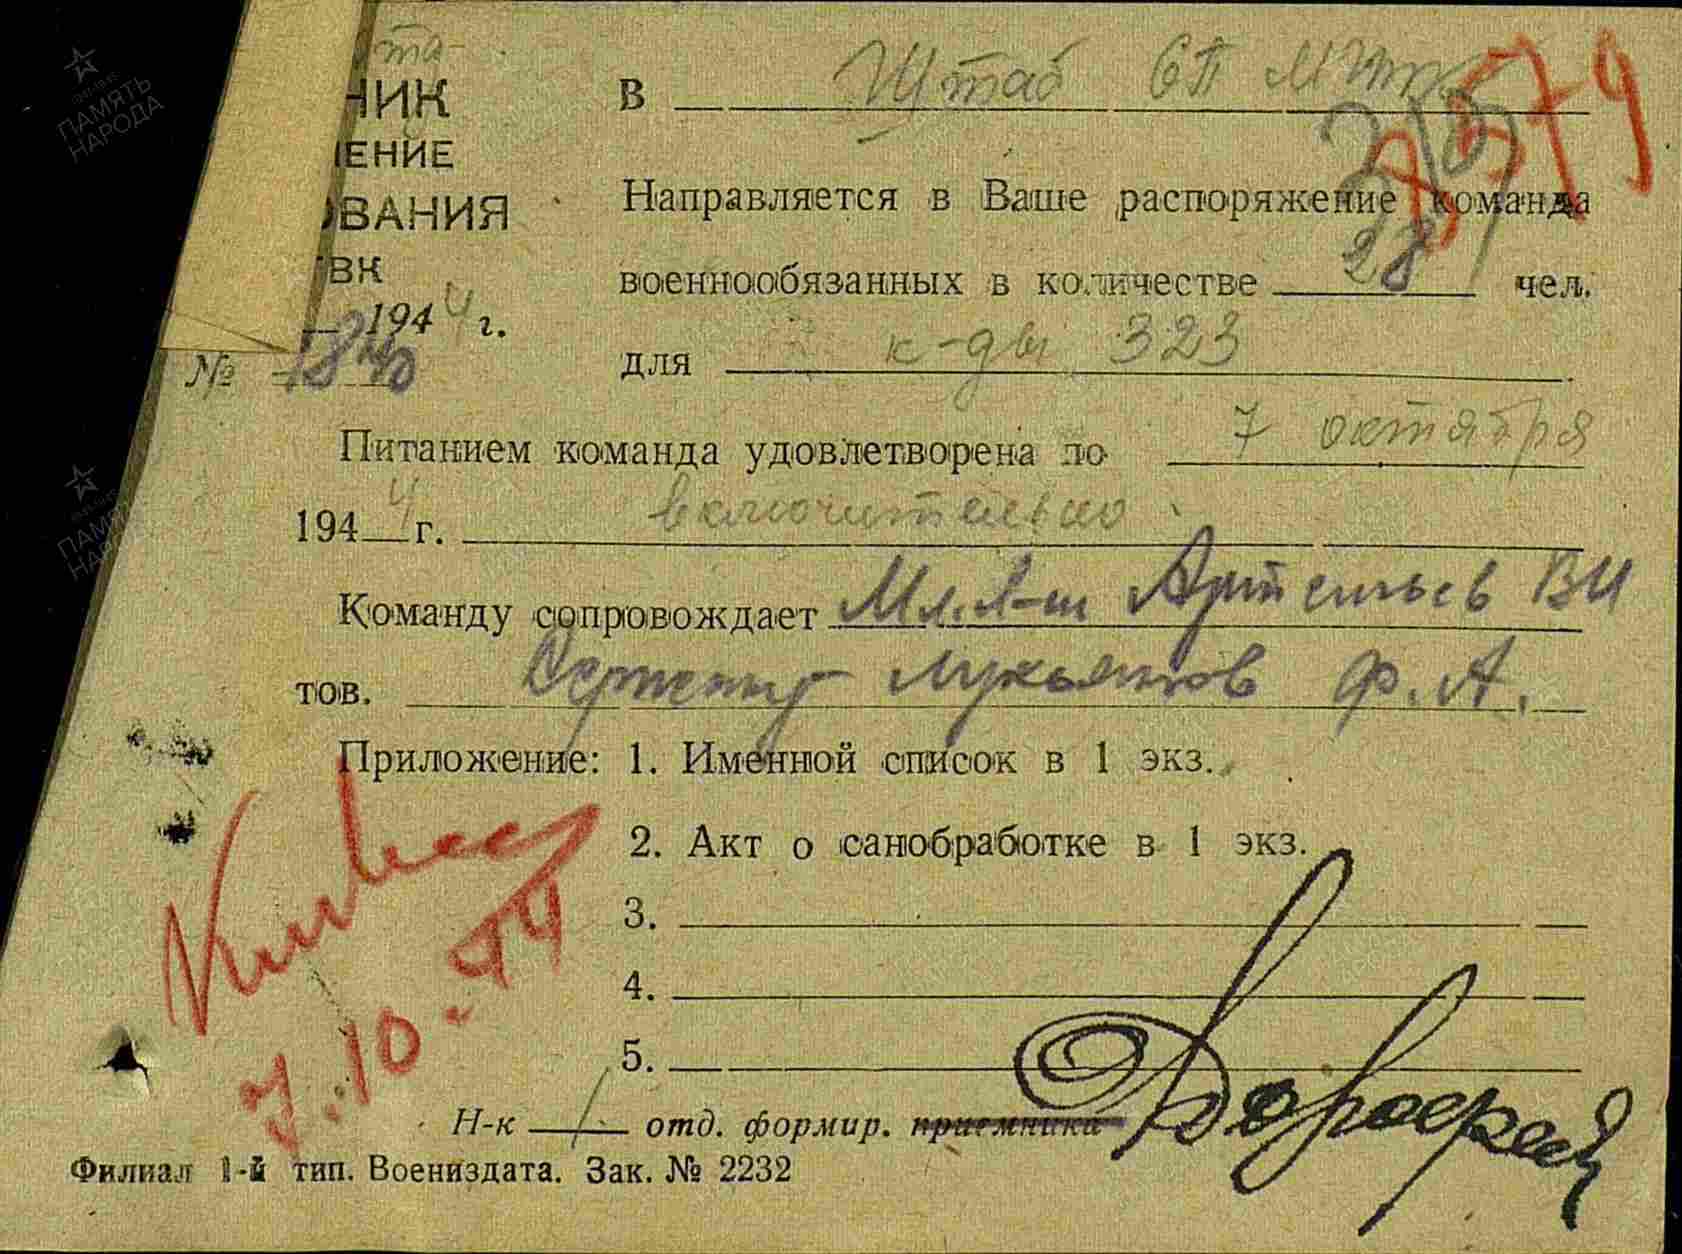 ПАМЯТЬ
НАРОДА
та
НИК
ЕНИЕ
ОВАНИЯ
ГВК
1944 г.
№ 1840
В Штаб СП МПП
8579
Направляется в Ваше распоряжение команда
военнообязанных в количестве 28 чел.
для к-ды 323
Питанием команда удовлетворена по 7 октября
1944 г. включительно.
Команду сопровождает Мл. л-т Артемьев ВИ
тов. Сержант Лукьянов Ф.А.
ПАМЯТЬ
НАРОДА
Приложение: 1. Именной список в 1 экз.
2. Акт о санобработке в 1 экз.
3.
4.
5.
7.10.44
Н-к отд. формир. приемника
Филиал 1-й тип. Воениздата. Зак. № 2232